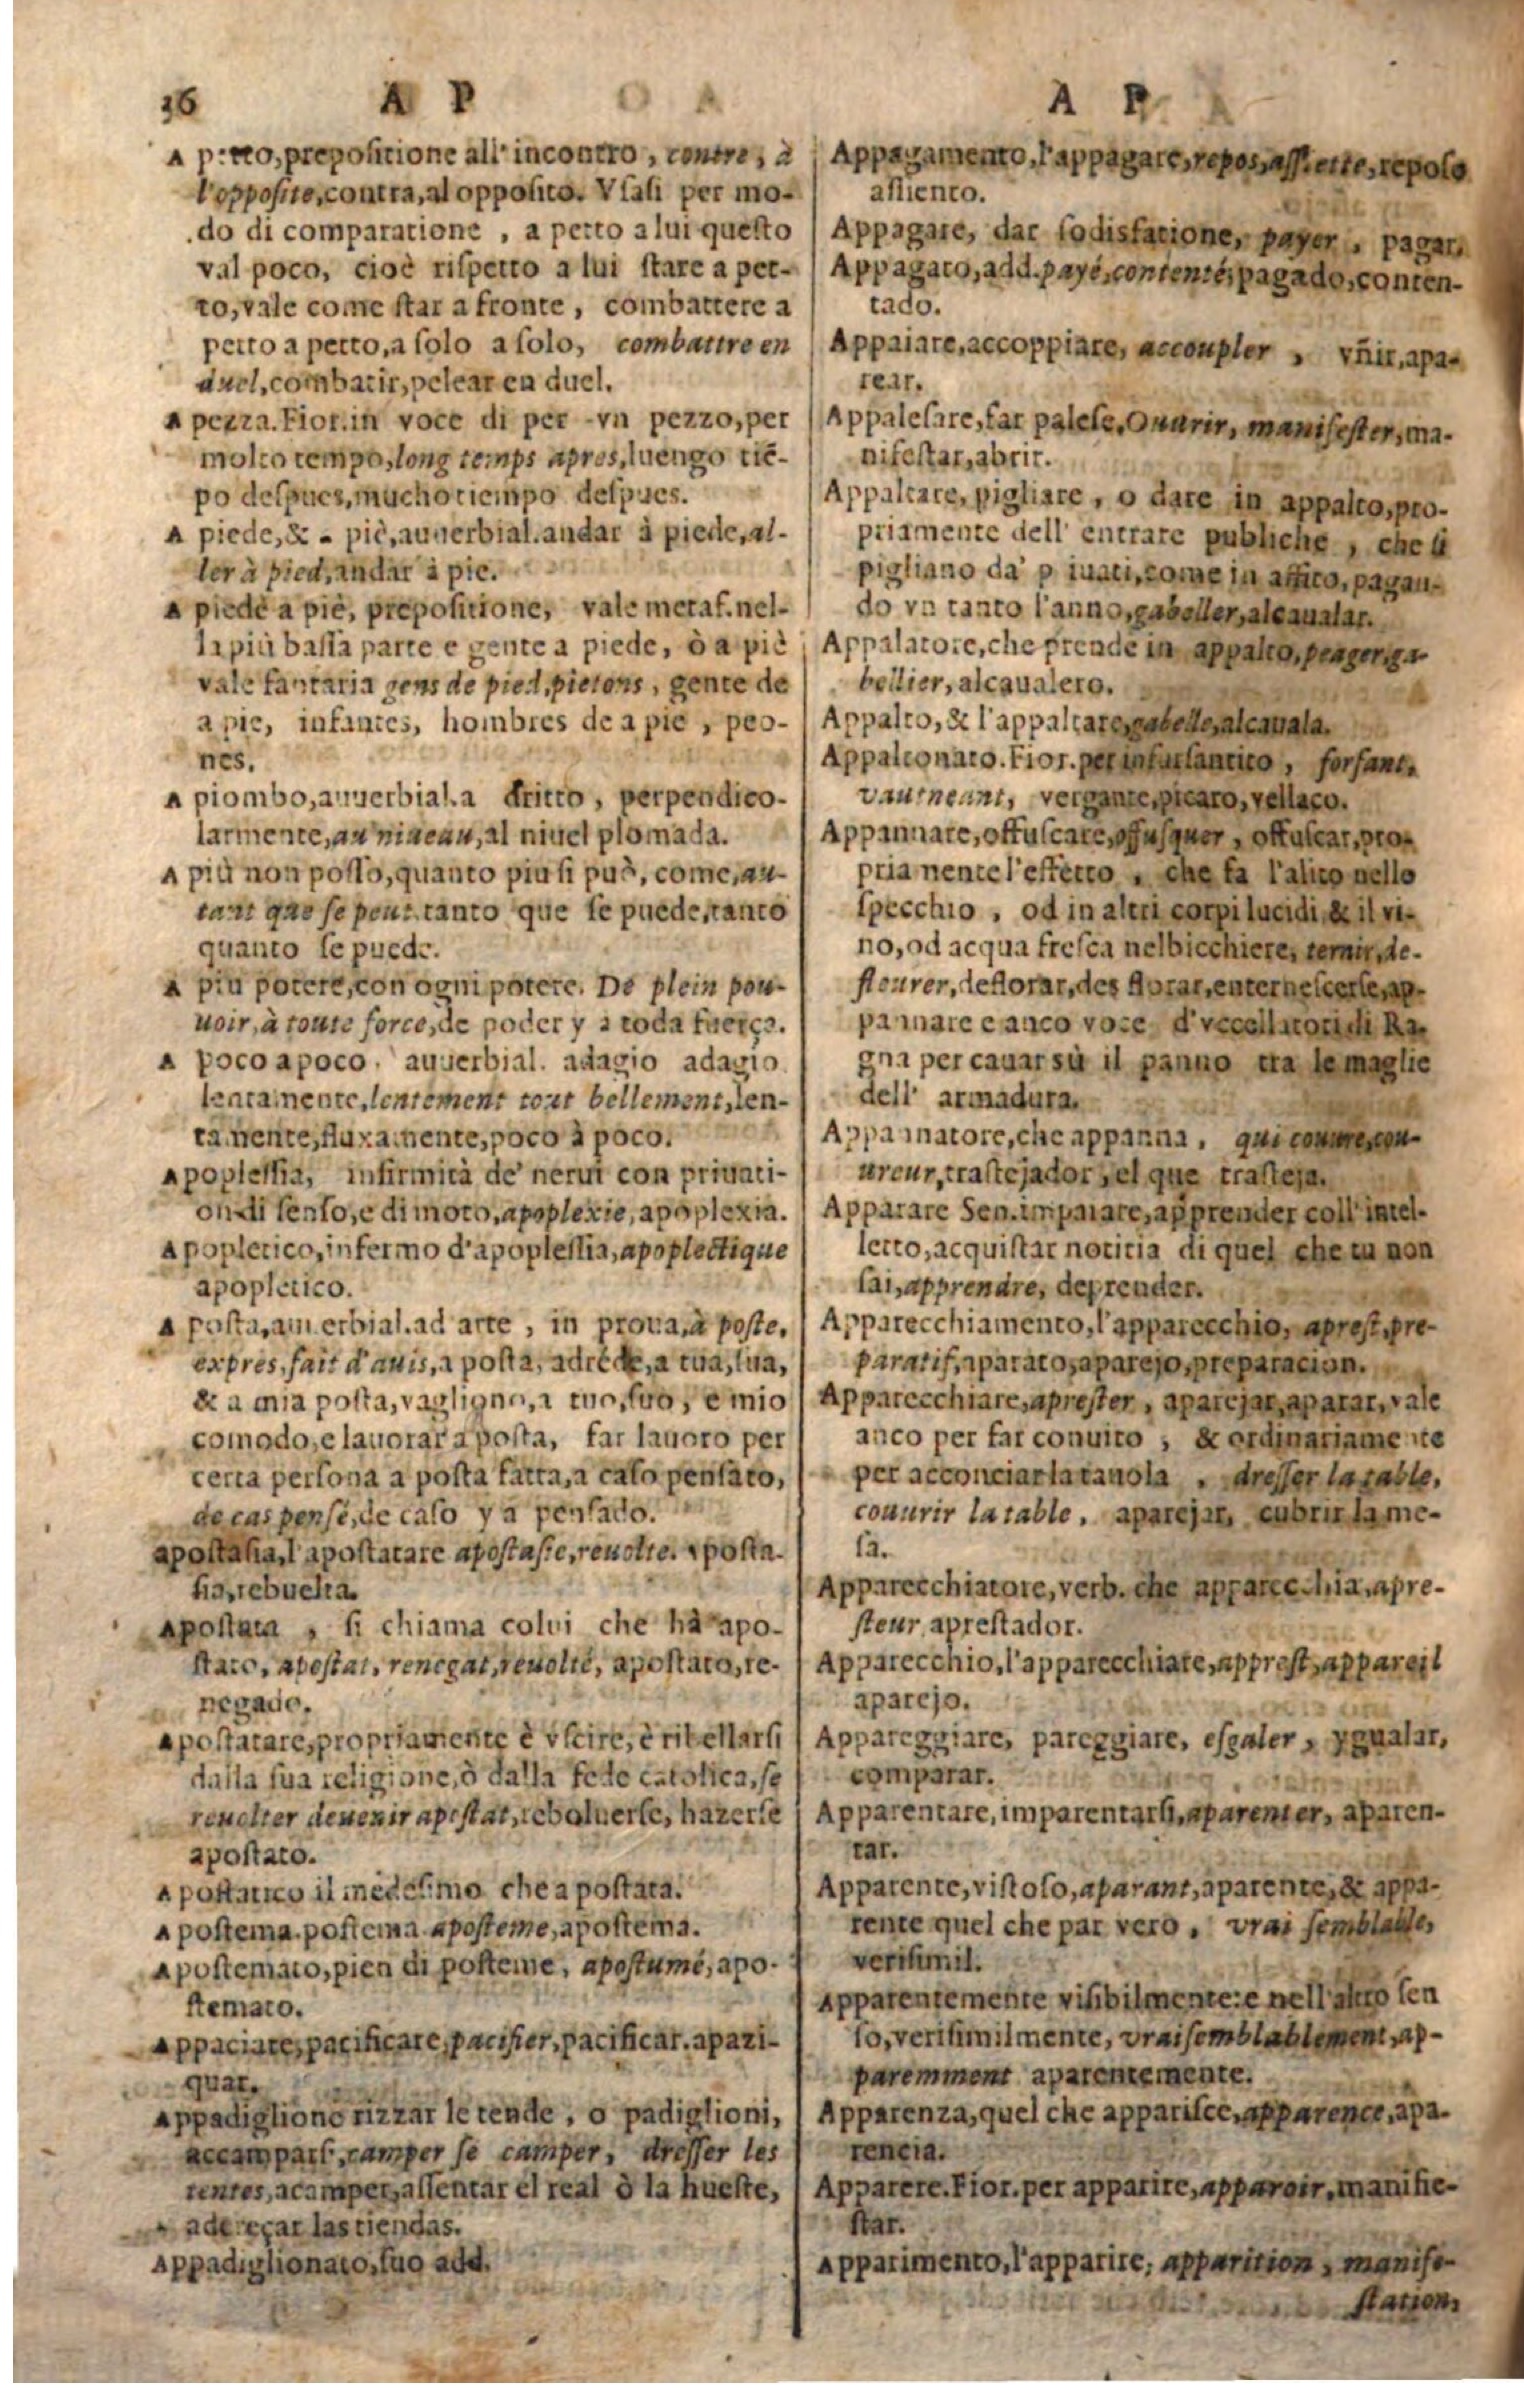 36 A P
A petto, prepositione all'incontro, contre, à
l'opposite, contra, al opposito. Vſaſi per mo-
do di comparatione, a petto a lui queſto
val poco, cioè riſpetto a lui ſtare a pet-
to, vale come ſtar a fronte, combattere a
petto a petto, a ſolo a ſolo, combattre en
duel, combatir, pelear en duel.
A pezza. Fior. in voce di per vn pezzo, per
molto tempo, long temps apres, luengo tiẽ-
po deſpues, mucho tiempo deſpues.
A piede, & a piè, auuerbial. andar à piede, al-
ler à pied, andar à pie.
A piede a piè, prepoſitione, vale metaf. nel-
la più baſſa parte e gente a piede, ò a piè
vale fantaria gens de pied, pietons, gente de
a pie, infantes, hombres de a pie, peo-
nes.
A piombo, auuerbial. a dritto, perpendico-
larmente, au niueau, al niuel plomada.
A più non poſſo, quanto piu ſi può, come, au-
tant que ſe peut. tanto que ſe puede, tanto
quanto ſe puede.
A piu potere, con ogni potere. De plein pou-
uoir, à toute force, de poder y a toda fuerça.
A poco a poco, auuerbial. adagio adagio
lentamente, lentement tout bellement, len-
tamente, fluxamente, poco à poco.
Apopleſſia, infirmità de' nerui con priuati-
on di ſenſo, e di moto, apoplexie, apoplexia.
Apopletico, infermo d'apopleſſia, apoplectique
apopletico.
A poſta, auuerbial. ad arte, in proua, à poſte,
expres, fait d'auis, a poſta, adrede, a tua, ſua,
& a mia poſta, vagliono, a tuo, ſuo, e mio
comodo, e lauorar a poſta, far lauoro per
certa perſona a poſta fatta, a caſo penſato,
de cas penſé, de caſo y a penſado.
apoſtaſia, l'apoſtatare apoſtaſie, reuolte. apoſta-
ſia, rebuelta.
Apoſtata, ſi chiama colui che hà apo-
ſtato, apoſtat, renegat, reuolté, apoſtato, re-
negado.
Apoſtatare, propriamente è vſcire, è ribellarſi
dalla ſua religione, ò dalla fede catolica, ſe
reuolter deuenir apoſtat, reboluerſe, hazerſe
apoſtato.
Apoſtatico il medeſimo che apoſtata.
Apoſtema. poſtema apoſteme, apoſtema.
Apoſtemato, pien di poſteme, apoſtumé, apo-
ſtemato.
Appaciare, pacificare, pacifier, pacificar. apazi-
guar.
Appadiglione rizzar le tende, o padiglioni,
accamparſi, camper ſe camper, dreſſer les
tentes, acamper, aſſentar el real ò la hueſte,
adereçar las tiendas.
Appadiglionato, ſuo add.
A P
Appagamento, l'appagare, repos, aſſiette, repoſo
aſſiento.
Appagare, dar ſodisfatione, payer, pagar,
Appagato, add. payé, contenté, pagado, conten-
tado.
Appaiare, accoppiare, accoupler, vñir, apa-
rear.
Appaleſare, far paleſe, Ouurir, manifeſter, ma-
nifeſtar, abrir.
Appaltare, pigliare, o dare in appalto, pro-
priamente dell' entrare publiche, che ſi
pigliano da' priuati, come in affito, pagan-
do vn tanto l'anno, gabeller, alcaualar.
Appalatore, che prende in appalto, peager, ga-
bellier, alcaualero.
Appalto, & l'appaltare, gabelle, alcauala.
Appaltonato. Fior. per infurfantito, forfant,
vautneant, vergante, picaro, vellaco.
Appannare, offuſcare, offuſquer, offuſcar, pro-
priamente l'effetto, che fa l'alito nello
ſpecchio, od in altri corpi lucidi, & il vi-
no, od acqua freſca nel bicchiere, ternir, de-
fleurer, deflorar, des florar, enterneſcerſe, ap-
pannare e anco voce d'vccellatori di Ra-
gna per cauar sù il panno tra le maglie
dell' armadura.
Appannatore, che appanna, qui couure, cou-
ureur, traſtejador, el que traſteja.
Apparare Sen. imparare, apprender coll' intel-
letto, acquiſtar notitia di quel che tu non
ſai, apprendre, deprender.
Apparecchiamento, l'apparecchio, apreſt, pre-
paratif, aparato, aparejo, preparacion.
Apparecchiare, apreſter, aparejar, aparar, vale
anco per far conuito, & ordinariamente
per acconciar la tauola, dreſſer la table,
couurir la table, aparejar, cubrir la me-
ſa.
Apparecchiatore, verb. che apparecchia, apre-
ſteur, apreſtador.
Apparecchio, l'apparecchiate, appreſt, appareil
aparejo.
Appareggiare, pareggiare, eſgaler, ygualar,
comparar.
Apparentare, imparentarſi, aparenter, aparen-
tar.
Apparente, viſtoſo, aparant, aparente, & appa-
rente quel che par vero, vrai ſemblable,
veriſimil.
Apparentemente viſibilmente: e nell'altro ſen
ſo, veriſimilmente, vraiſemblablement, ap-
paremment aparentemente.
Apparenza, quel che appariſce, apparence, apa-
rencia.
Apparere. Fior. per apparire, apparoir, manifie-
ſtar.
Apparimento, l'apparire, apparition, manife-
ſtation,